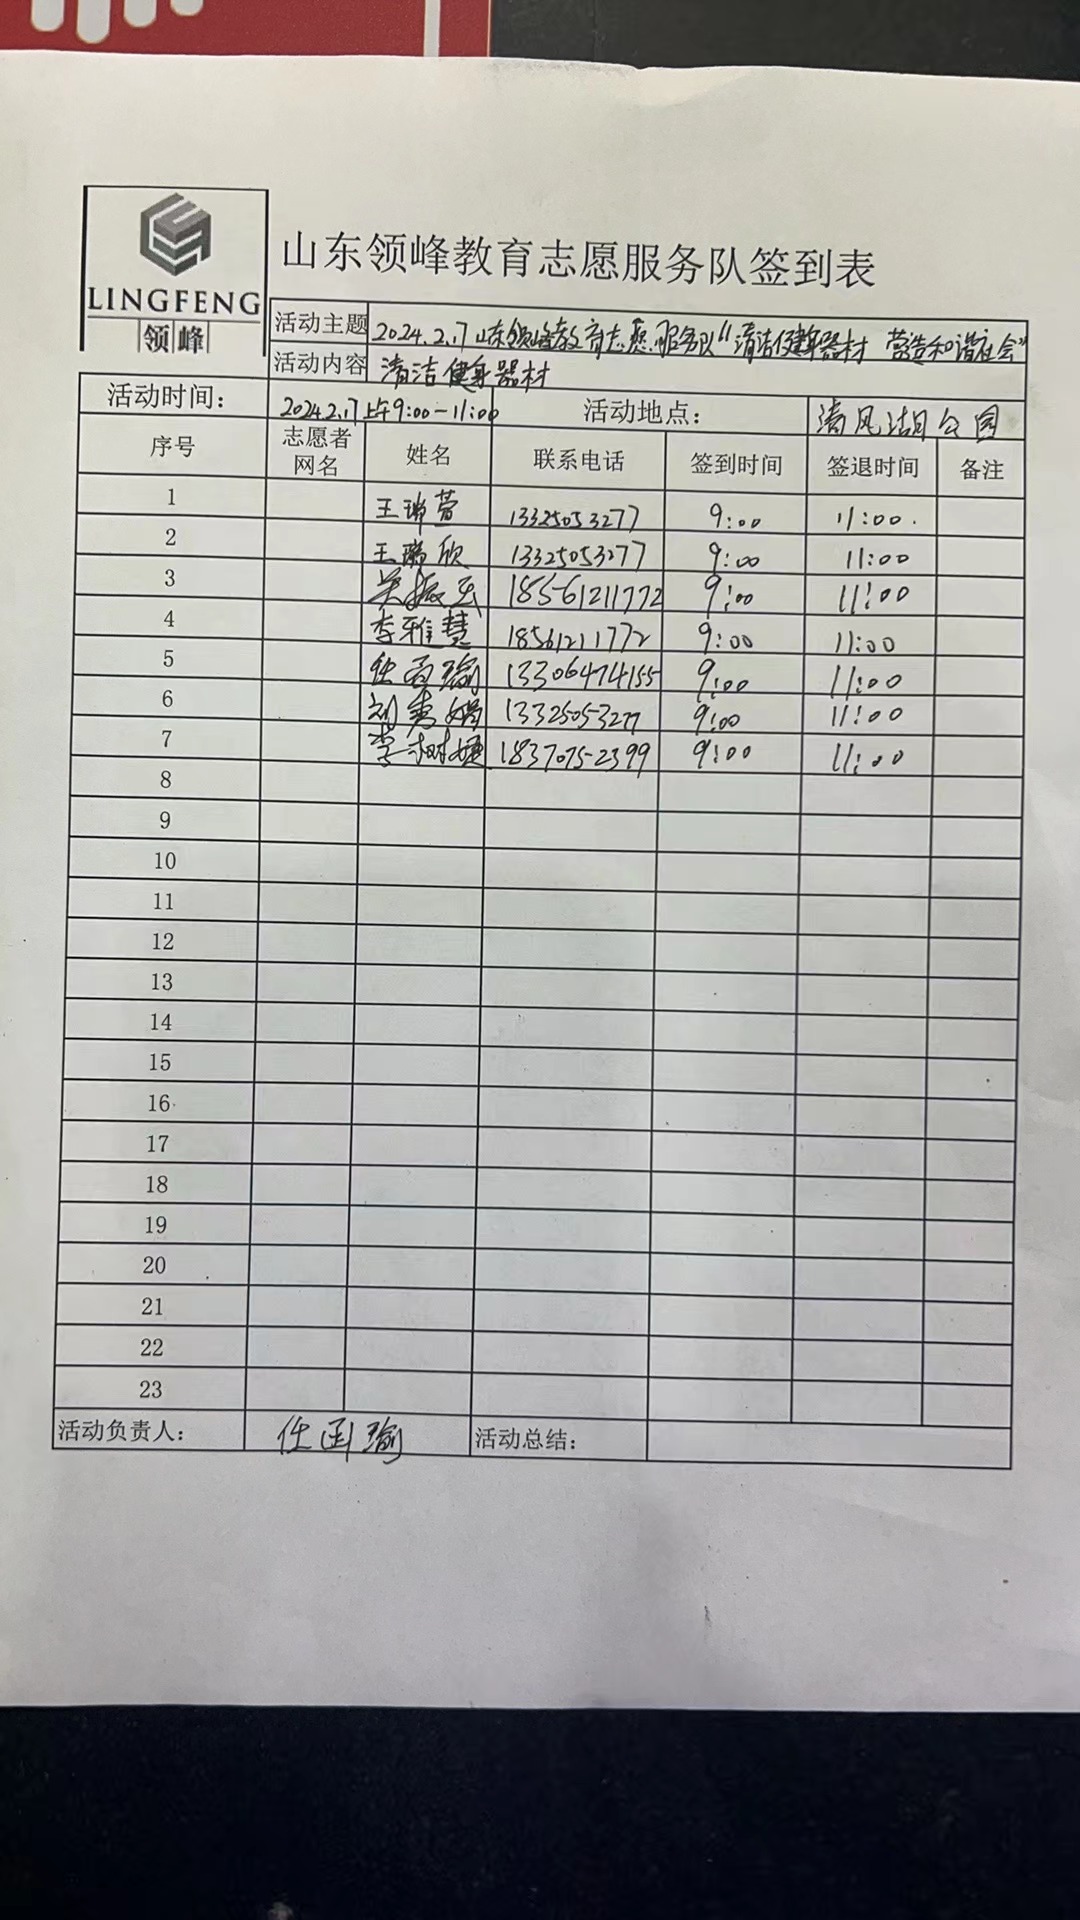 LINGFENG
领峰
山东领峰教育志愿服务队签到表
活动主题 2024.2.17 山东领峰教育志愿服务队“清洁健身器材 营造和谐社会”
活动内容 清洁健身器材
活动时间: 2024.2.17 上午9:00-11:00 活动地点: 清风湖公园
序号 志愿者网名 姓名 联系电话 签到时间 签退时间 备注
1 王瑞萱 13325053277 9:00 11:00.
2 王瑞欣 13325053277 9:00 11:00
3 吴振 18561211772 9:00 11:00
4 李雅慧 18561211772 9:00 11:00
5 任函瑜 13306474155 9:00 11:00
6 刘秀娟 13325053277 9:00 11:00
7 李树 18370752399 9:00 11:00
8
9
10
11
12
13
14
15
16
17
18
19
20
21
22
23
活动负责人: 任函瑜 活动总结: